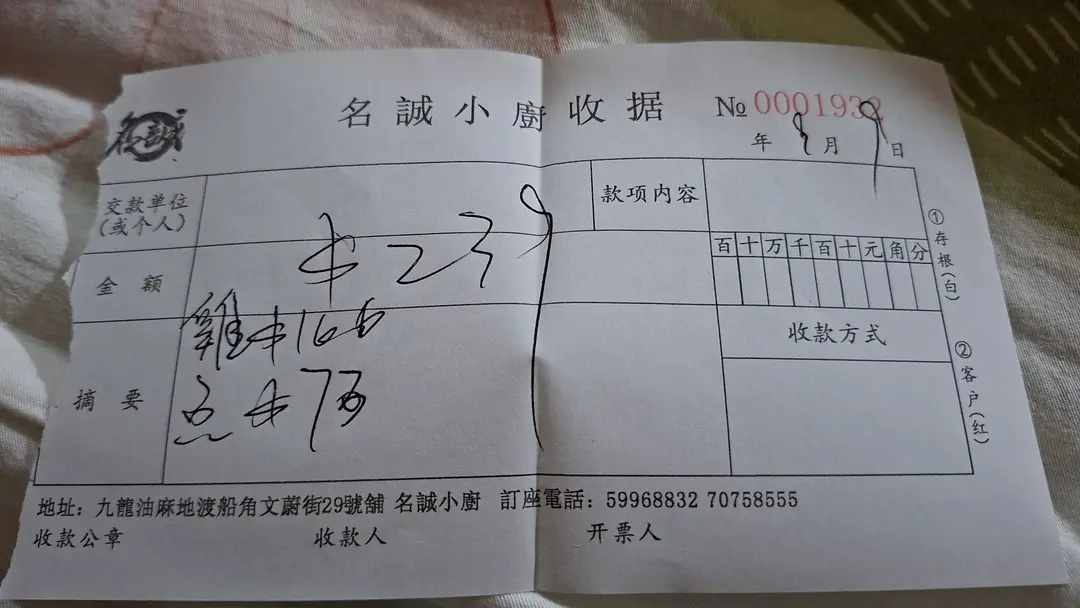 名誠
名誠小廚收据
№ 0001932
年 8 月 9 日
交款单位
(或个人)
款项内容
金额
$239
百十万千百十元角分
摘要
雞$166
$73
收款方式
①存根(白)
②客户(红)
地址：九龍油麻地渡船角文蔚街29號舖 名誠小廚 訂座電話：59968832 70758555
收款公章 收款人 开票人